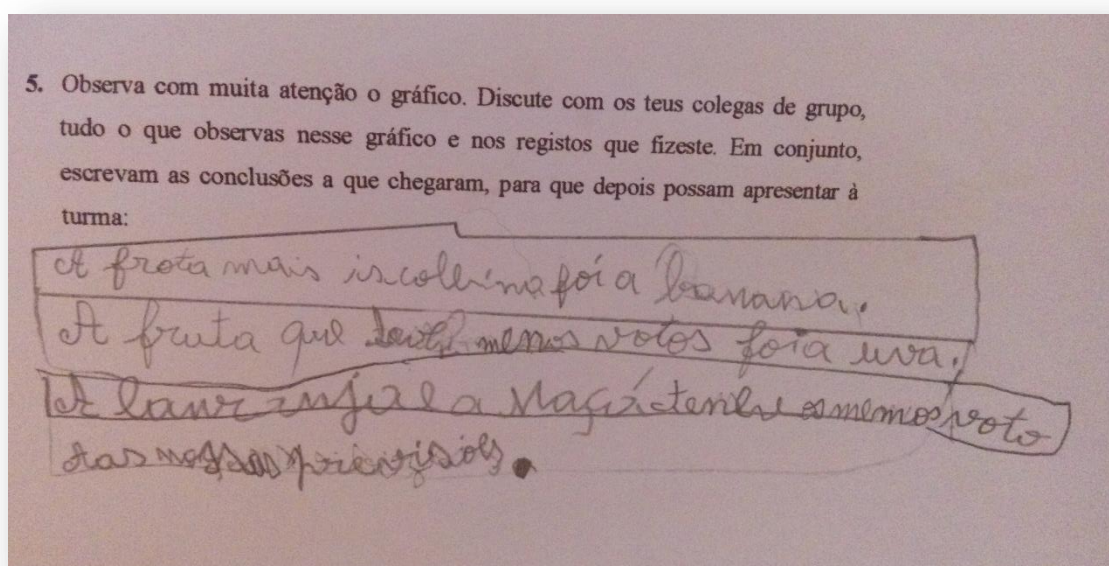 5. Observa com muita atenção o gráfico. Discute com os teus colegas de grupo,
tudo o que observas nesse gráfico e nos registos que fizeste. Em conjunto,
escrevam as conclusões a que chegaram, para que depois possam apresentar à
turma:
A frota mais iscolhina foi a banana.
A fruta que menos votos foi a uva.
A e a Maçá os memos voto
das nossas